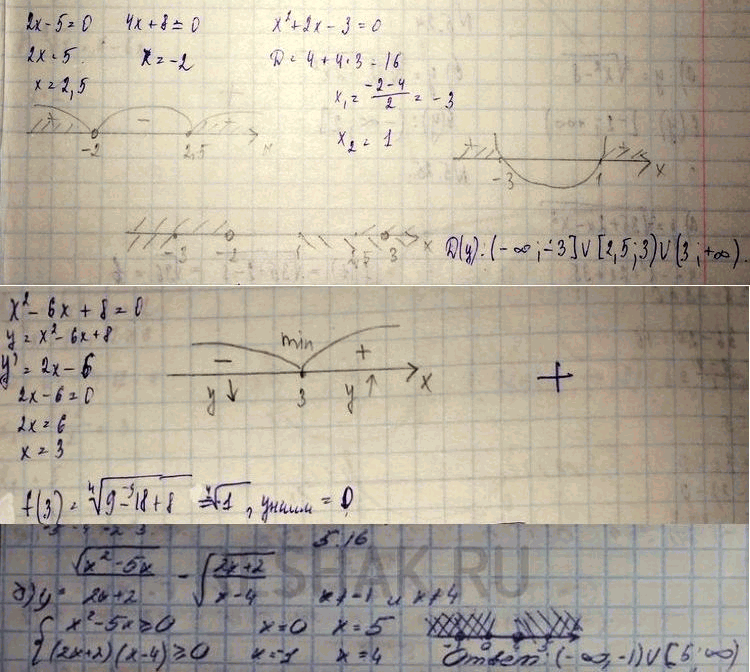 2x-5=0 4x+8=0 x²+2x-3=0
2x=5 x=-2 D=4+4·3=16
x=2,5 x₁=(-2-4)/2=-3
x₂=1
+ - +
-2 2,5
+ +
-3 1 x
-3 -2 1 2,5 3 x
D(y):(-∞;-3]∪[2,5;3)∪(3;+∞).
x²-6x+8=0
y=x²-6x+8
y'=2x-6
2x-6=0
2x=6
x=3
min
- +
y↓ 3 y↑ x
+
f(3)=⁴√(9-18+8)=⁴√-1, yнаим=0
5.16
SHAK.RU
б)y=√(x²-5x)/(2x+2)-√((2x+2)/(x-4)) x≠-1 и x≠4
{x²-5x≥0 x=0 x=5
{(2x+2)(x-4)≥0 x=-1 x=4
Ответ:(-∞,-1)∪[5;∞)